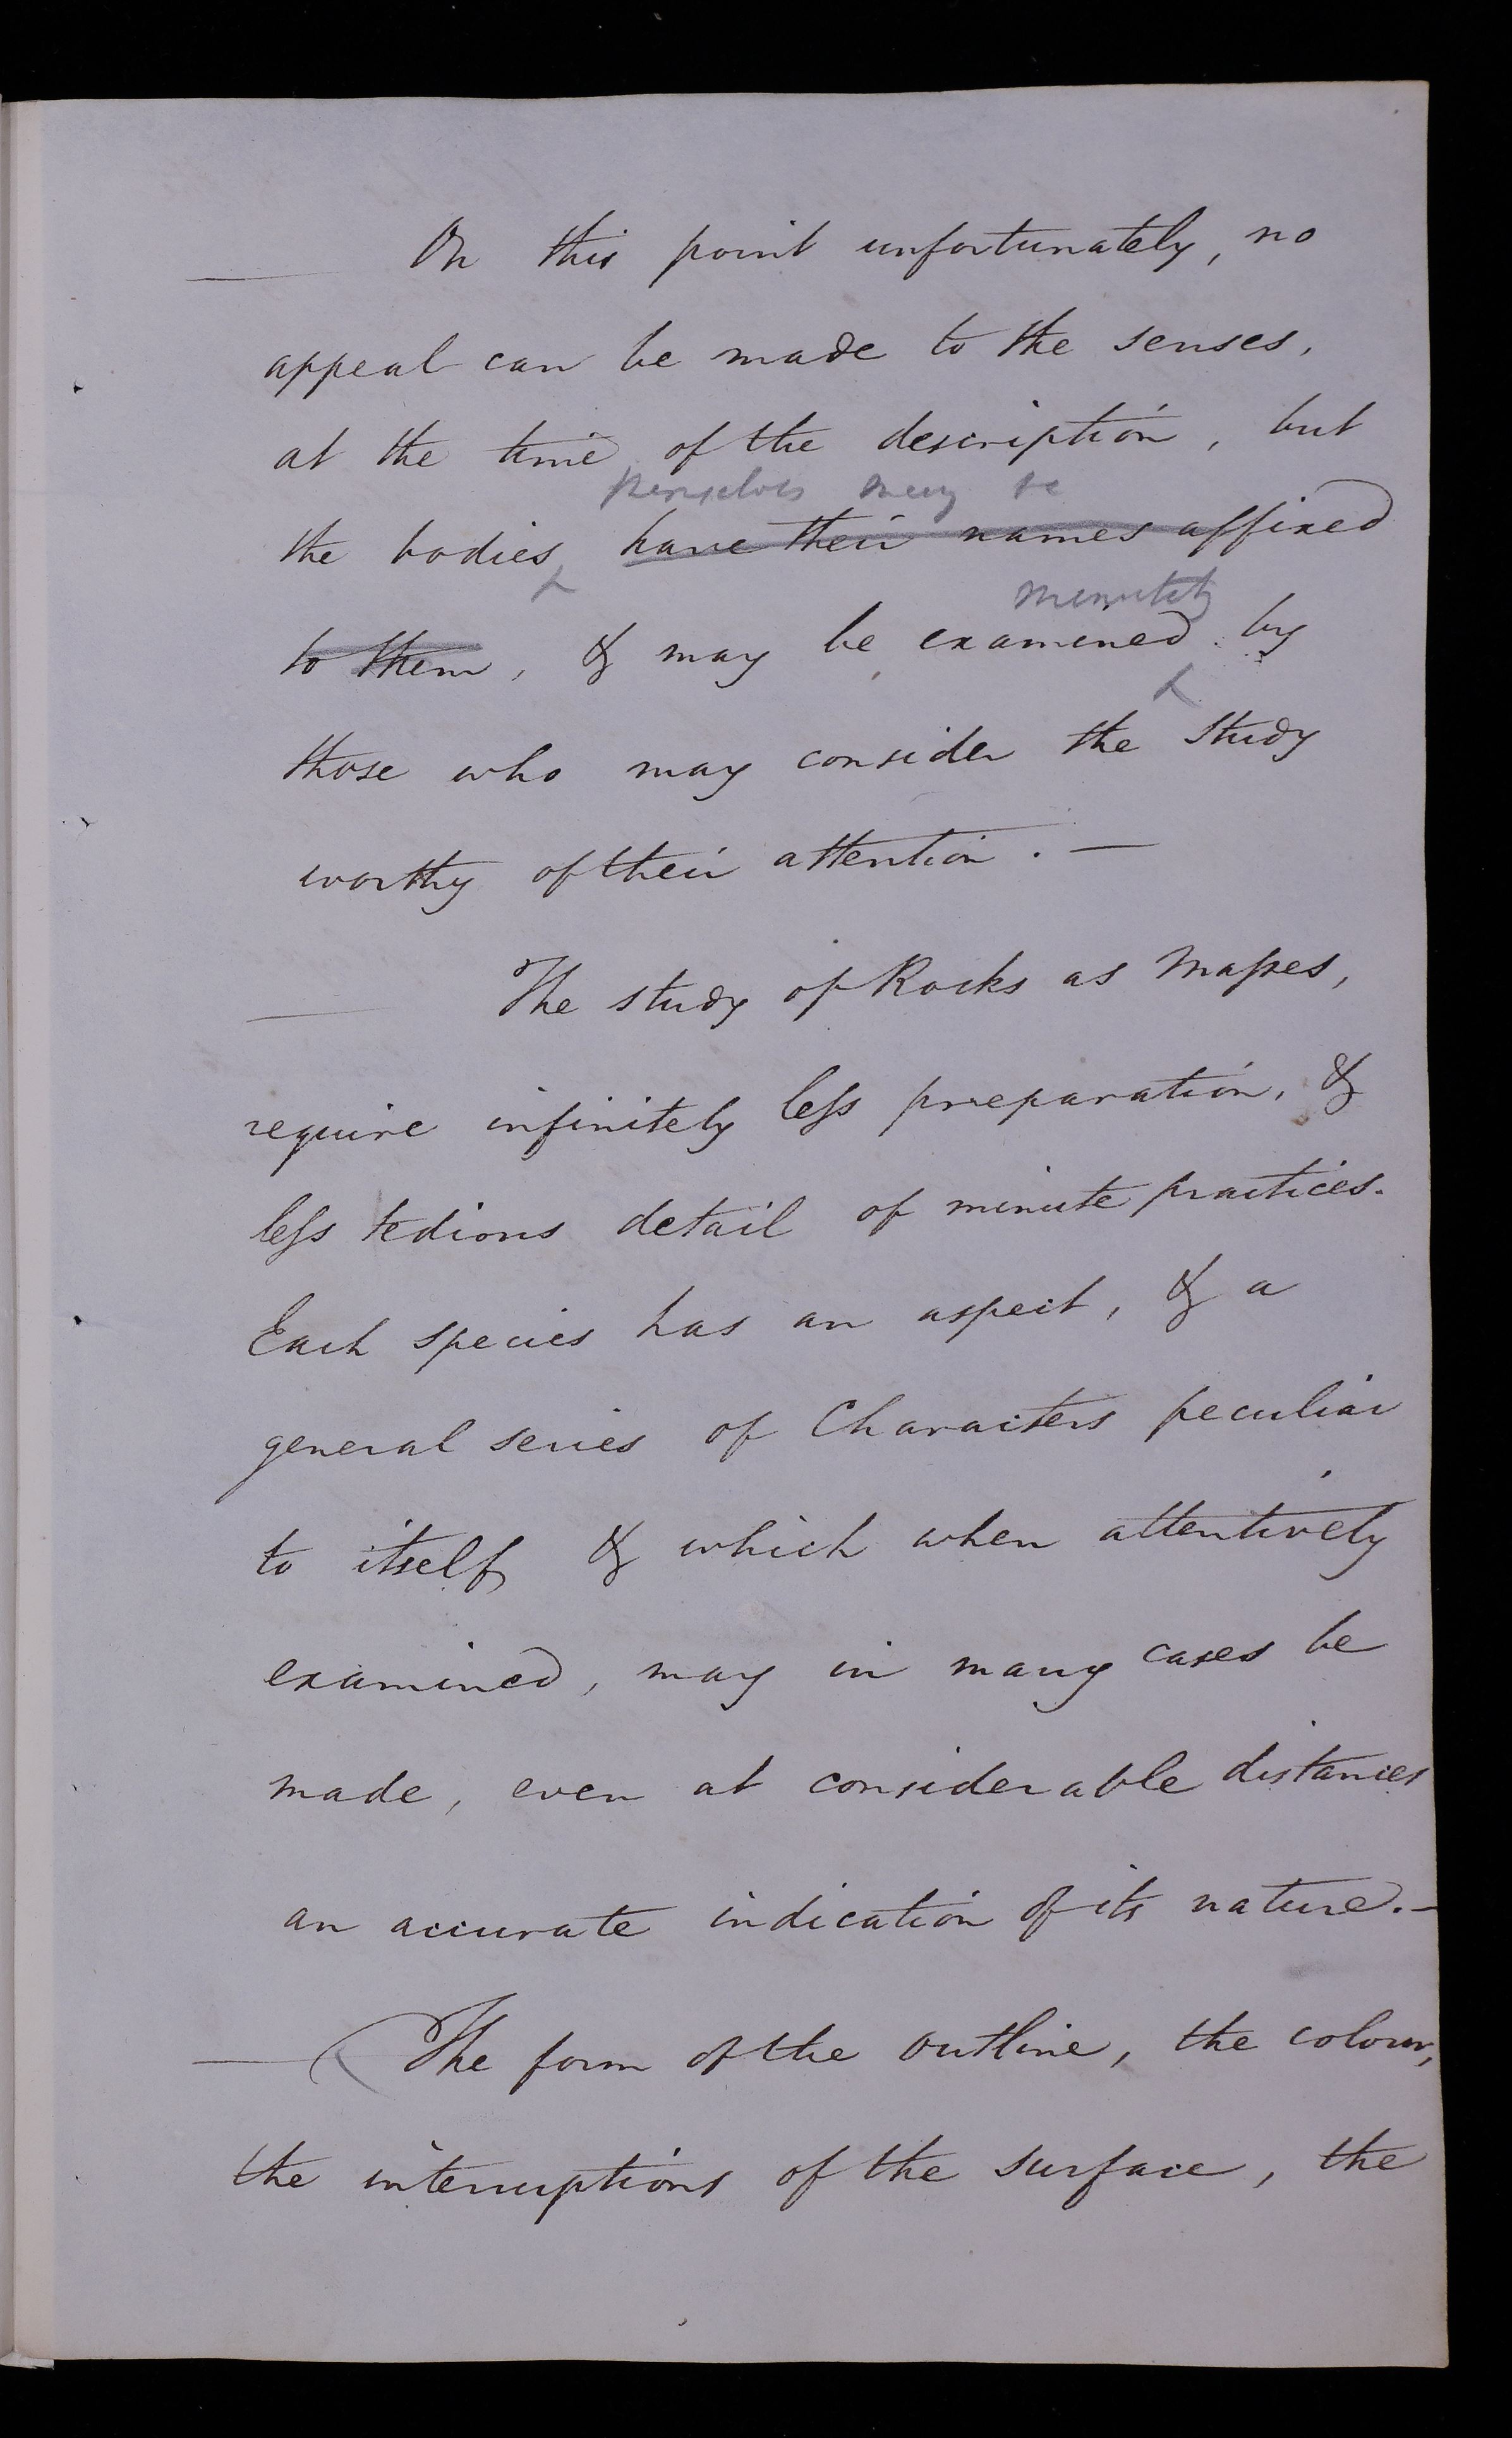 On this point unfortunately, no
appeal can be made to the senses,
at the time of the description, but
themselves may be
the bodies have their names affixed
minutely
to them, & may be examined by
those who may consider the Study
worthy of their attention. —
The study of Rocks as Masses,
require infinitely less preparation, &
less tedious detail of minute practices.
Each species has an aspect, & a
general series of Characters peculiar
to itself & which when attentively
examined, may in many cases be
made, even at considerable distances
an accurate indication of its nature. —
— The form of the outline, the colour,
the interruptions of the surface, the